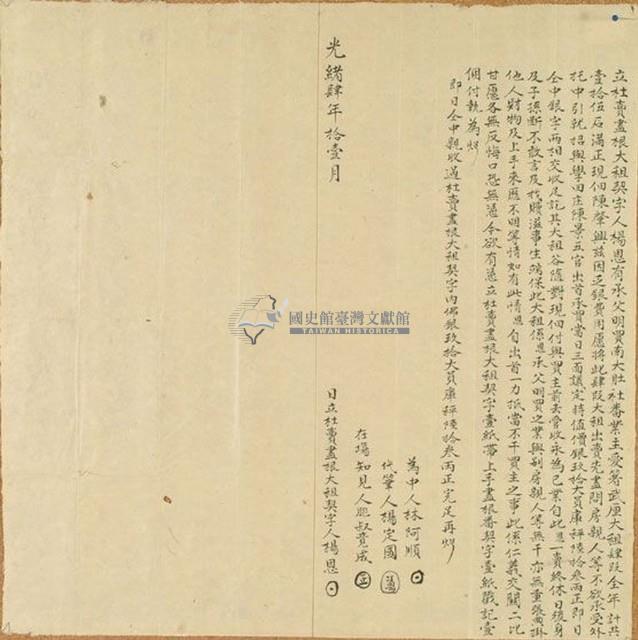 立杜賣盡根大租契字人楊恩有承父明買南大肚社番業主愛箸武厘大租肆段全年計共
壹拾伍石滿正現佃陳聲興茲因乏銀費用愿將此肆段大租出賣先盡問房親人等不欲承受外
托中引就招與學田庄陳景五官出首承買當日三面議定時值價銀玖拾大員庫秤陸拾叁兩正即日
仝中銀字兩相交收足訖其大租谷隨對現佃付與買主前去管收永為己業自此恩一賣終休日後身
及子孫斷不敢言及找贖滋事生端保此大租係恩承父明買之業與別房親人等無干亦無重張典掛
他人財物及上手來歷不明等情如有此情恩自出首一力抵當不干買主之事此係仁義交關二比
甘愿各無反悔口恐無憑今欲有憑立杜賣盡根大租契字壹紙帶上手盡根番契字壹紙戳記壹
個付執為炤
即日仝中親收過杜賣盡根大租契字內佛銀玖拾大員庫秤陸拾叁兩正完足再炤
為中人林阿順
代筆人楊定國
在場知見人胞叔竟成
光緒肆年拾壹月
日立杜賣盡根大租契字人楊恩
國史館臺灣文獻館
TAIWAN HISTORICA